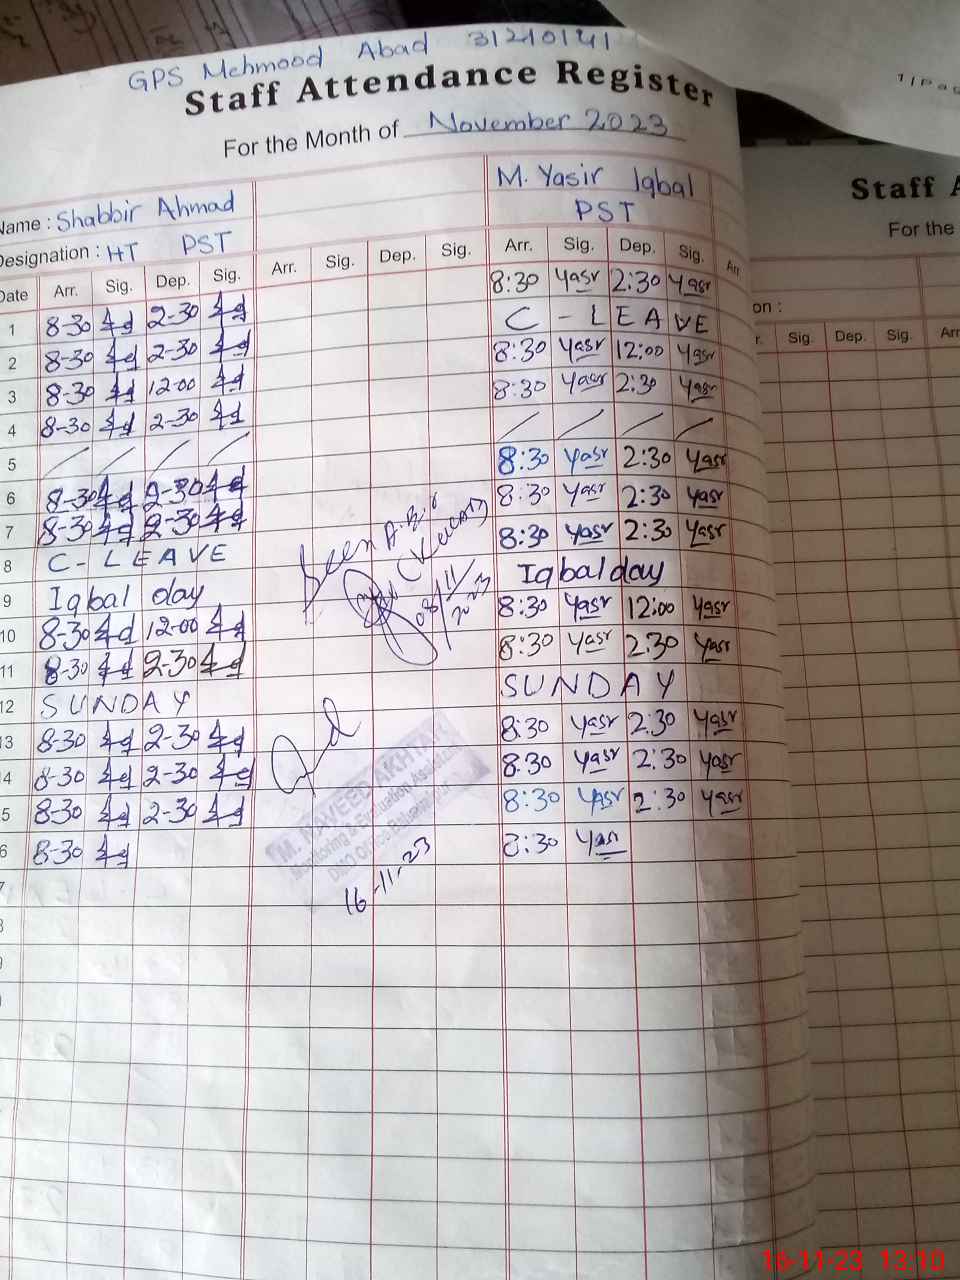 GPS Mehmood Abad 31210141
Staff Attendance Register
For the Month of November 2023
Name : Shabbir Ahmad
M. Yasir Iqbal
Designation : HT PST
PST
Date Arr. Sig. Dep. Sig. Arr. Sig. Dep. Sig. Arr. Sig. Dep. Sig. Arr
1 8-30 2-30 8:30 Yasr 2:30 Yasr
2 8-30 2-30 C - LEAVE
3 8-30 12-00 8:30 Yasr 12:00 Yasr
4 8-30 2-30 8:30 Yasr 2:30 Yasr
5 / / / / / / / /
6 8-30 2-30 8:30 Yasr 2:30 Yasr
7 8-30 2-30 8:30 Yasr 2:30 Yasr
8 C - LEAVE 8:30 Yasr 2:30 Yasr
9 Iqbal day Iqbal day
10 8-30 12-00 8:30 Yasr 12:00 Yasr
11 8-30 2-30 8:30 Yasr 2:30 Yasr
12 SUNDAY SUNDAY
13 8-30 2-30 8:30 Yasr 2:30 Yasr
4 8-30 2-30 8:30 Yasr 2:30 Yasr
5 8-30 2-30 8:30 Yasr 2:30 Yasr
6 8-30 8:30 Yasr
7
8
9
Seen
08/11/2023
M. NAVEED AKHTAR
Monitoring & Evaluation Assistant
DMO Office Bahawalpur
16-11-23
1 | Pag
Staff A
For the
on :
r. Sig. Dep. Sig. Arr
16-11-23 13:10